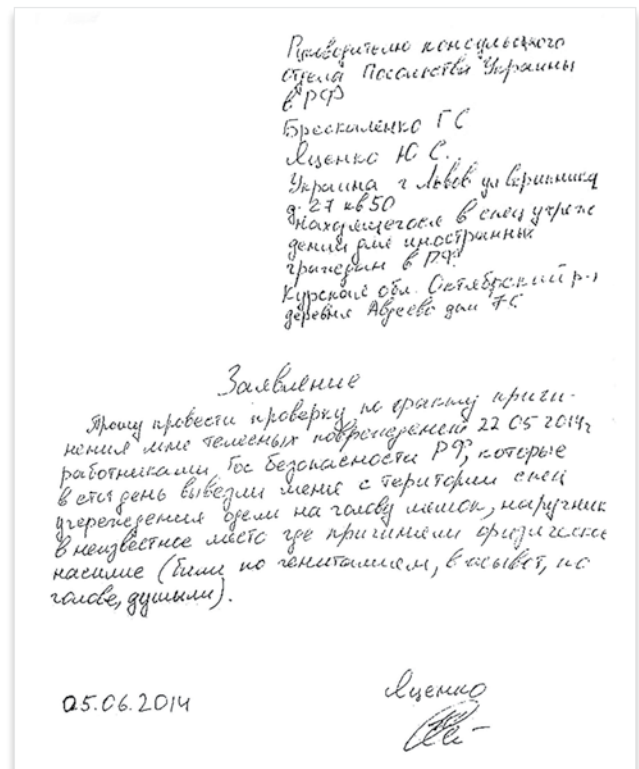 Руководителю консульского
отдела Посольства Украины
в РФ
Брескаленко Г С
Яценко Ю С.
Украина г Львов ул
д. 27 кв 50
находящегося в спец учреж
дении для иностранных
граждан в РФ.
Курская обл. Октябрьский р-н
деревня Авдеева дом 7С
Заявление
Прошу провести проверку по факту причи-
нения мне телесных повреждений 22 05 2014г
работниками Гос безопасности РФ, которые
в этот день вывезли меня с територии спец
учереждения одели на голову мешок, наручник
в неизвестное место где принимали физическое
насилие (били по гениталием, в живот, по
голове, душыли).
05.06.2014
Яценко